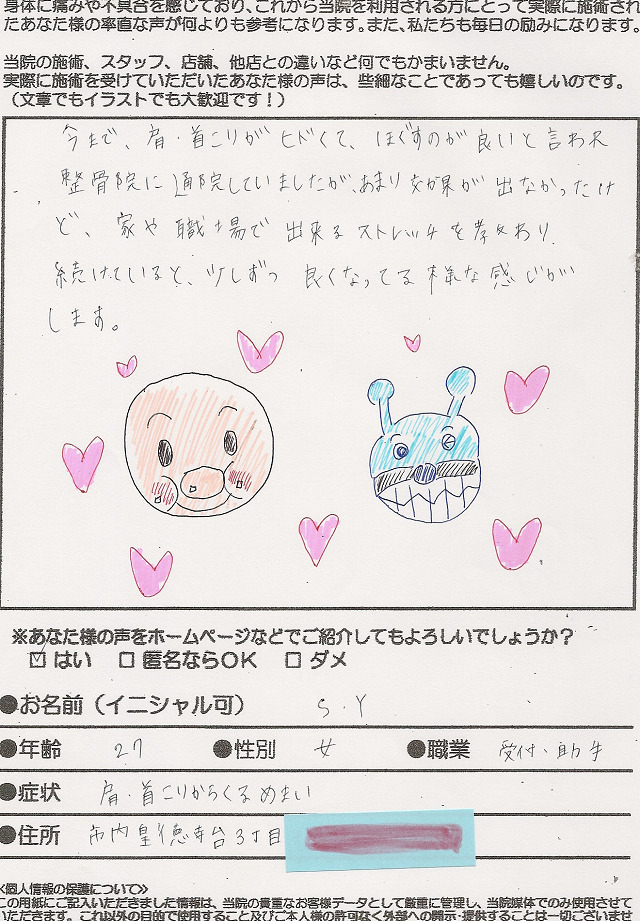 身体に痛みや不具合を感じており、これから当院を利用される方にとって実際に施術され
たあなた様の率直な声が何よりも参考になります。また、私たちも毎日の励みになります。
当院の施術、スタッフ、店舗、他店との違いなど何でもかまいません。
実際に施術を受けていただいたあなた様の声は、些細なことであっても嬉しいのです。
（文章でもイラストでも大歓迎です！）
今まで、肩・首こりがヒドくて、ほぐすのが良いと言われ
整骨院に通院していましたが、あまり効果が出なかったけ
ど、家や職場で出来るストレッチを教わり
続けていると、少しずつ良くなってる様な感じが
します。
※あなた様の声をホームページなどでご紹介してもよろしいでしょうか？
はい 匿名ならOK ダメ
●お名前（イニシャル可） S.Y
●年齢 27 ●性別 女 ●職業 受付・助手
●症状 肩・首こりからくるめまい
●住所 市内皇徳寺台3丁目
<個人情報の保護について>
この用紙にご記入いただきました情報は、当院の貴重なお客様データとして厳重に管理し、当院媒体でのみ使用させて
いただきます。これ以外の目的で使用すること及びご本人様の許可なく外部への開示・提供することは一切ございませ